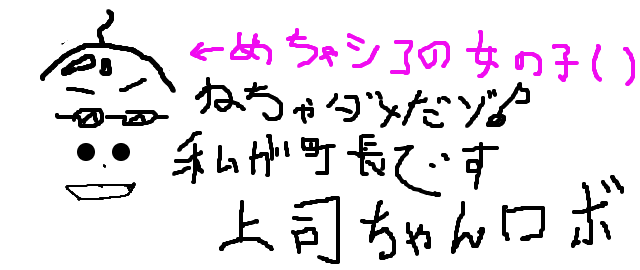 ←めちゃシコの女の子()
ねちゃダメだゾ♪
私が町長です
上司ちゃんロボ